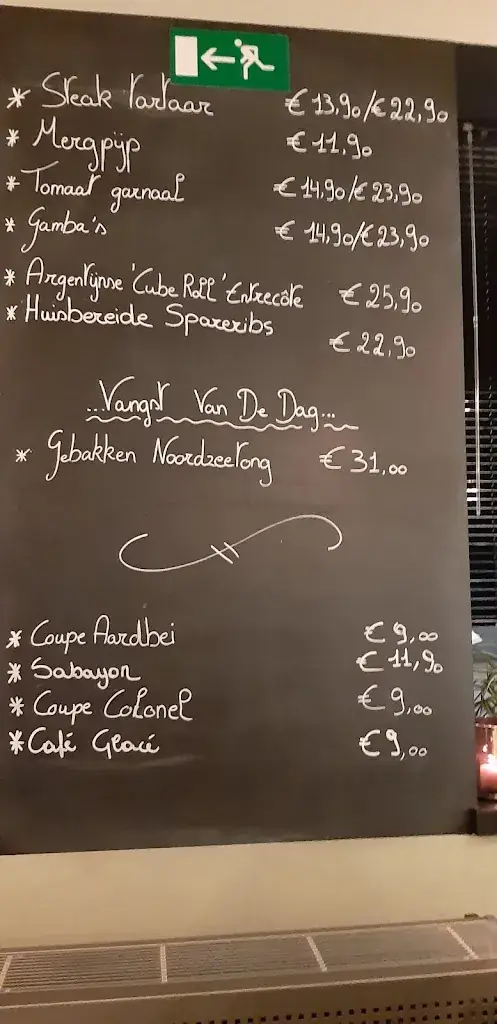 * Steak Tartaar € 13,90/€ 22,90
* Mergpijp € 11,90
* Tomaat garnaal € 14,90/€ 23,90
* Gamba's € 14,90/€ 23,90
* Argentijnse 'Cube Roll' Entrecôte € 25,90
* Huisbereide Spareribs € 22,90
...Vangst Van De Dag...
* Gebakken Noordzeetong € 31,00
* Coupe Aardbei € 9,00
* Sabayon € 11,90
* Coupe Colonel € 9,00
* Café Glacé € 9,00